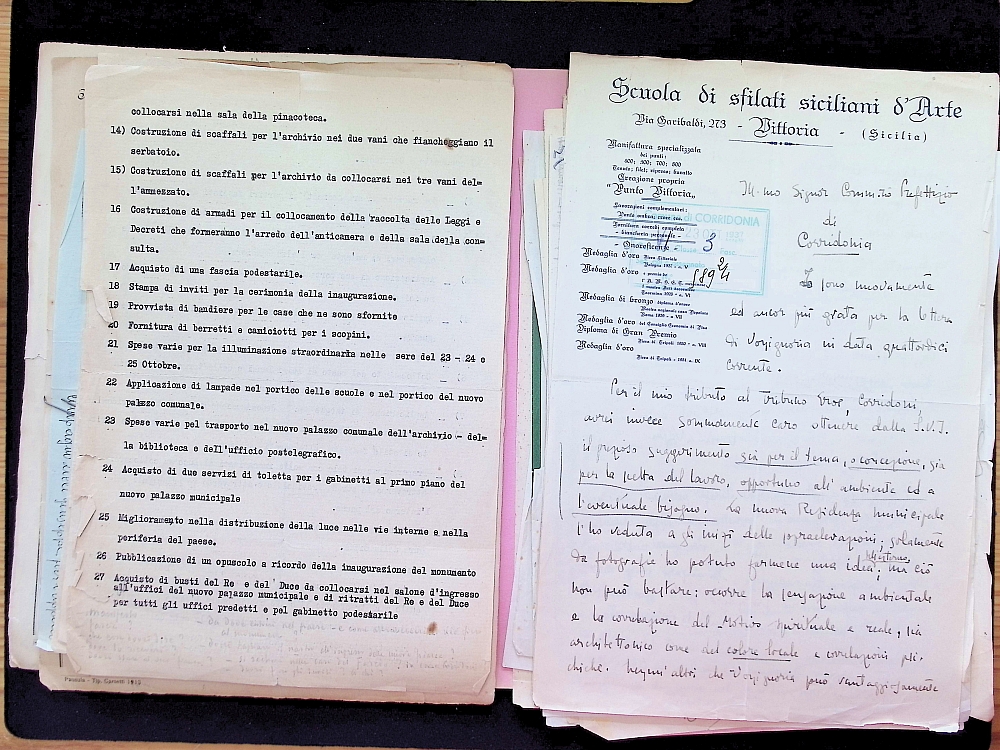 collocarsi nella sala della pinacoteca.
14) Costruzione di scaffali per l'archivio nei due vani che fiancheggiano il
serbatoio.
15) Costruzione di scaffali per l'archivio da collocarsi nei tre vani del=
l'ammezzato.
16 Costruzione di armadi per il collocamento della raccolta delle Leggi e
Decreti che formeranno l'arredo dell'anticamera e della sala della con=
sulta.
17 Acquisto di una fascia podestarile.
18 Stampa di inviti per la cerimonia della inaugurazione.
19 Provvista di bandiere per le case che ne sono sfornite
20 Fornitura di berretti e camiciotti per i scopini.
21 Spese varie per la illuminazione straordinaria nelle sere del 23 - 24 e
25 Ottobre.
22 Applicazione di lampade nel portico delle scuole e nel portico del nuovo
palazzo comunale.
23 Spese varie pel trasporto nel nuovo palazzo comunale dell'archivio - del=
la biblioteca e dell'ufficio postelegrafico.
24 Acquisto di due servizi di toletta per i gabinetti al primo piano del
nuovo palazzo municipale
25 Miglioramento nella distribuzione della luce nelle vie interne e nella
periferia del paese.
26 Pubblicazione di un opuscolo a ricordo della inaugurazione del monumento
27 Acquisto di busti del Re e del Duce da collocarsi nel salone d'ingresso
all'uffici del nuovo palazzo municipale e di ritratti del Re e del Duce
per tutti gli uffici predetti e pel gabinetto podestarile
Scuola di sfilati siciliani d'Arte
Via Garibaldi, 273 - Vittoria - (Sicilia)
Manifattura specializzata
dei punti:
400; 500; 700; 800
Creazione propria
"Punto Vittoria„
Lavorazioni complementari:
- biancheria personale -
- Onorificenze -
Medaglia d'oro
Medaglia d'oro
Medaglia di bronzo
Medaglia d'oro
Diploma di Gran Premio
Medaglia d'oro
di CORRIDONIA
3
589 2/4
Ill.mo Signor Comm.rio Prefettizio
di
Corridonia
Le sono nuovamente
ed ancor più grata per la lettera
di Vossignoria in data quattordici
corrente.
Per il mio tributo al Tribuno Eroe, Corridoni,
avrei invece sommamente caro ottenere dalla S.V.I.
il prezioso suggerimento sia per il tema, o concezione, sia
per la scelta del lavoro, opportuno all'ambiente ed a
l'eventuale bisogno. La nuova Residenza municipale
l'ho veduta a gli inizi delle sopraelevazioni; solamente
da fotografie ho potuto farmene una idea, ma ciò
non può bastare; occorre la sensazione ambientale
e la correlazione del Motivo spirituale e reale, sia
architettonico come del colore locale e correlazioni psi-
chiche. Nessun altri che Vossignoria può vantaggiosamente